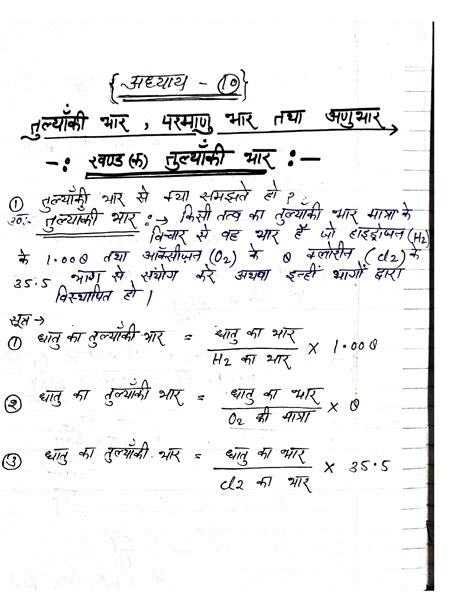 {अध्याय - 10}
तुल्याँकी भार, परमाणु भार तथा अणुभार
-: खण्ड (क) तुल्याँकी भार :-
① तुल्याँकी भार से क्या समझते हो?
उ०:- तुल्याँकी भार :→ किसी तत्व का तुल्याँकी भार मात्रा के
विचार से वह भार है जो हाइड्रोजन (H2)
के 1.008 तथा ऑक्सीजन (O2) के 8 क्लोरीन (Cl2) के
35.5 भाग से संयोग करे अथवा इन्हीं भागों द्वारा
विस्थापित हो।
सूत्र →
① धातु का तुल्याँकी भार = धातु का भार / H2 का भार × 1.008
② धातु का तुल्याँकी भार = धातु का भार / O2 की मात्रा × 8
③ धातु का तुल्याँकी भार = धातु का भार / Cl2 का भार × 35.5